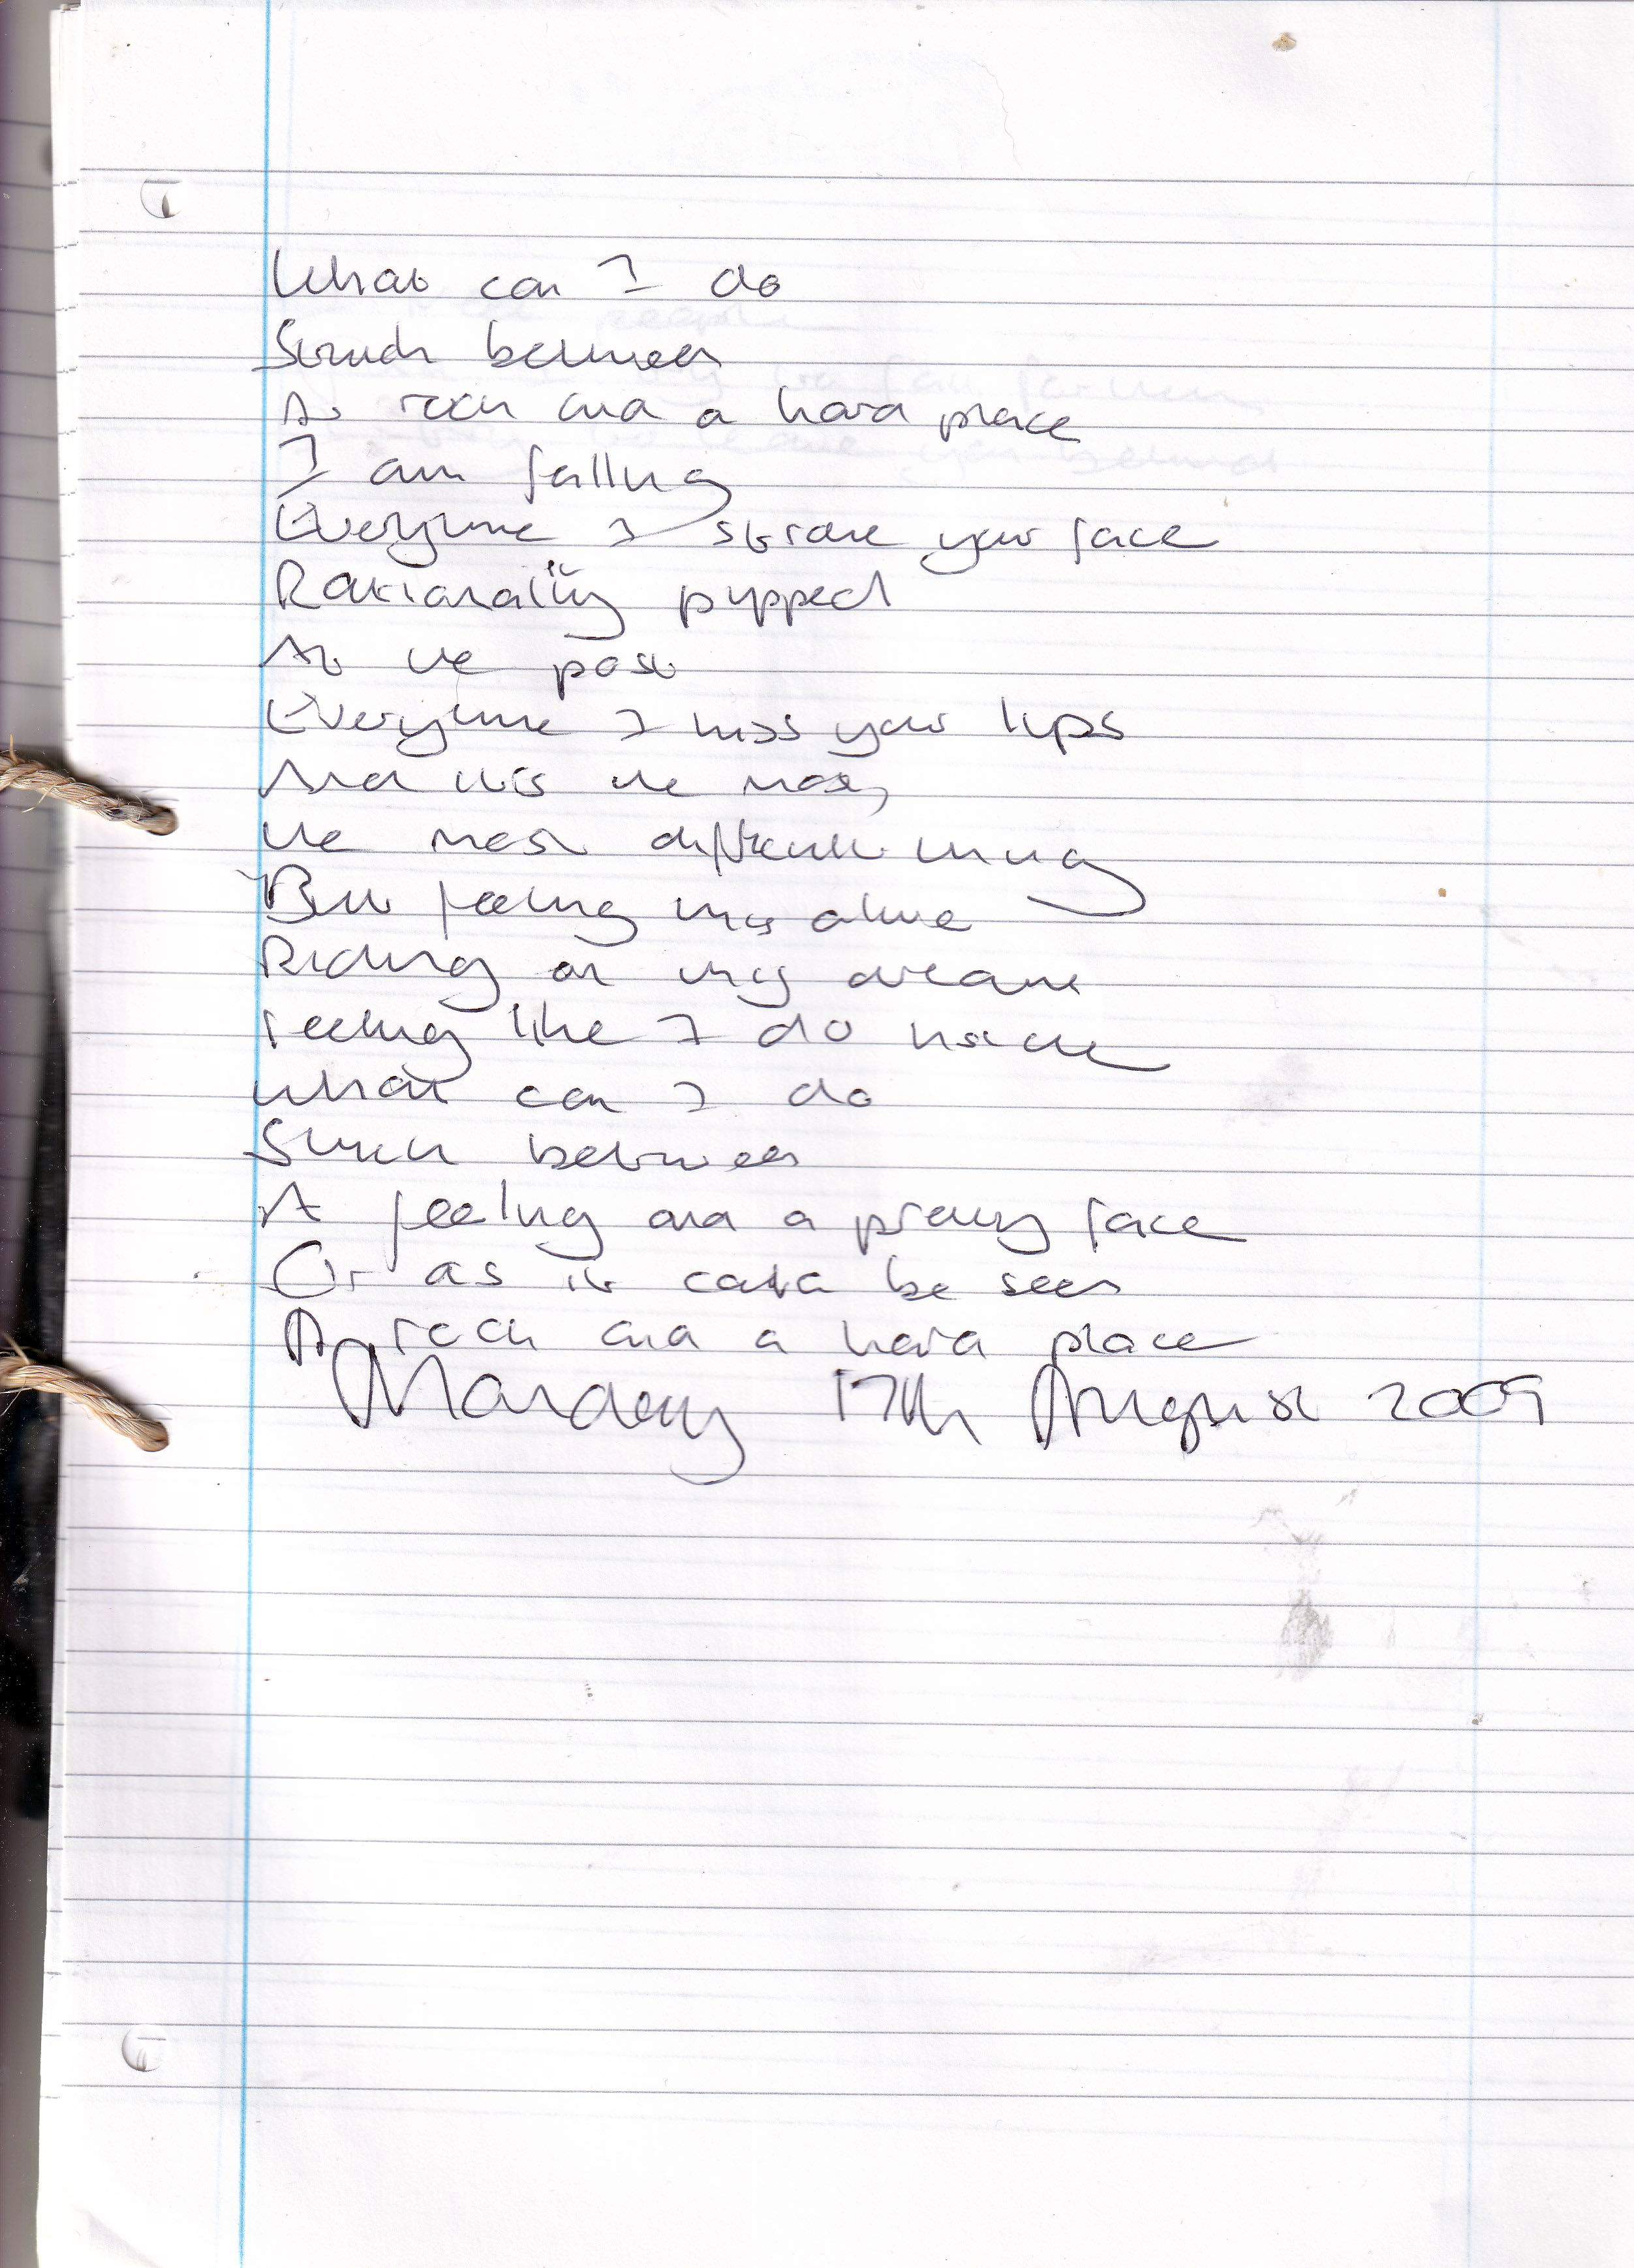 What can I do
Stuck between
A rock and a hard place
I am falling
Everytime I stroke your face
Rationality pipped
At the post
Everytime I kiss your lips
And this the most,
the most difficult thing
But feeling this alive
Riding on my dreams
Feeling like I do inside
What can I do
Stuck between
A feeling and a pretty face
Or as it could be seen
A rock and a hard place
Monday 17th August 2009